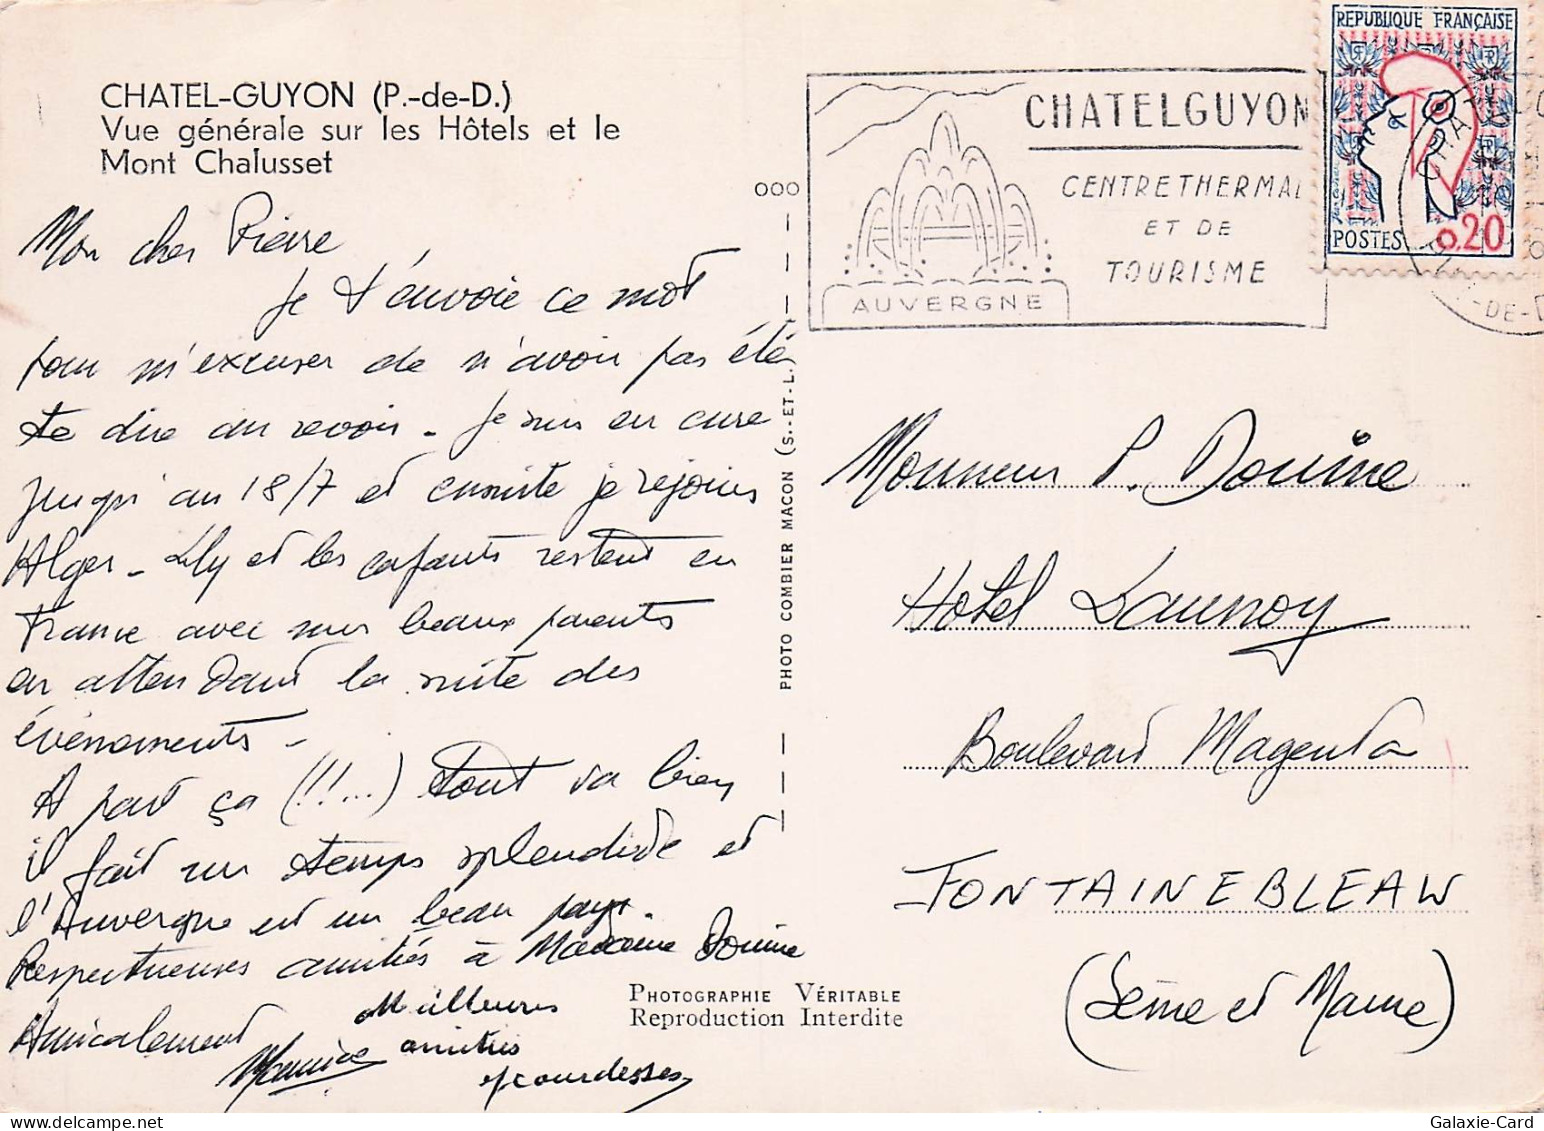 CHATEL-GUYON (P.-de-D.)
Vue générale sur les Hôtels et le
Mont Chalusset
Mon cher Pierre
Je t'envoie ce mot
pour m'excuser de n'avoir pas été
te dire au revoir - Je suis en cure
jusqu'au 18/7 et ensuite je rejoins
Alger - Lily et les enfants restent en
France avec mes beaux parents
en attendant la suite des
événements -
A part ça (!!...) tout va bien
il fait un temps splendide et
l'Auvergne est un beau pays.
Respectueuses amitiés à Madame Douine
Amicalement
Maurice
Meilleures
amitiés
PHOTOGRAPHIE VÉRITABLE
Reproduction Interdite
PHOTO COMBIER MACON (S.-ET-L.)
000
CHATELGUYON
CENTRE THERMAL
ET DE
TOURISME
AUVERGNE
REPUBLIQUE FRANÇAISE
POSTES 0.20
-DE-D
Monsieur P. Douine
Hotel Launoy
Boulevard Magenta
FONTAINEBLEAU
(Seine et Marne)
Galaxie-Card.com